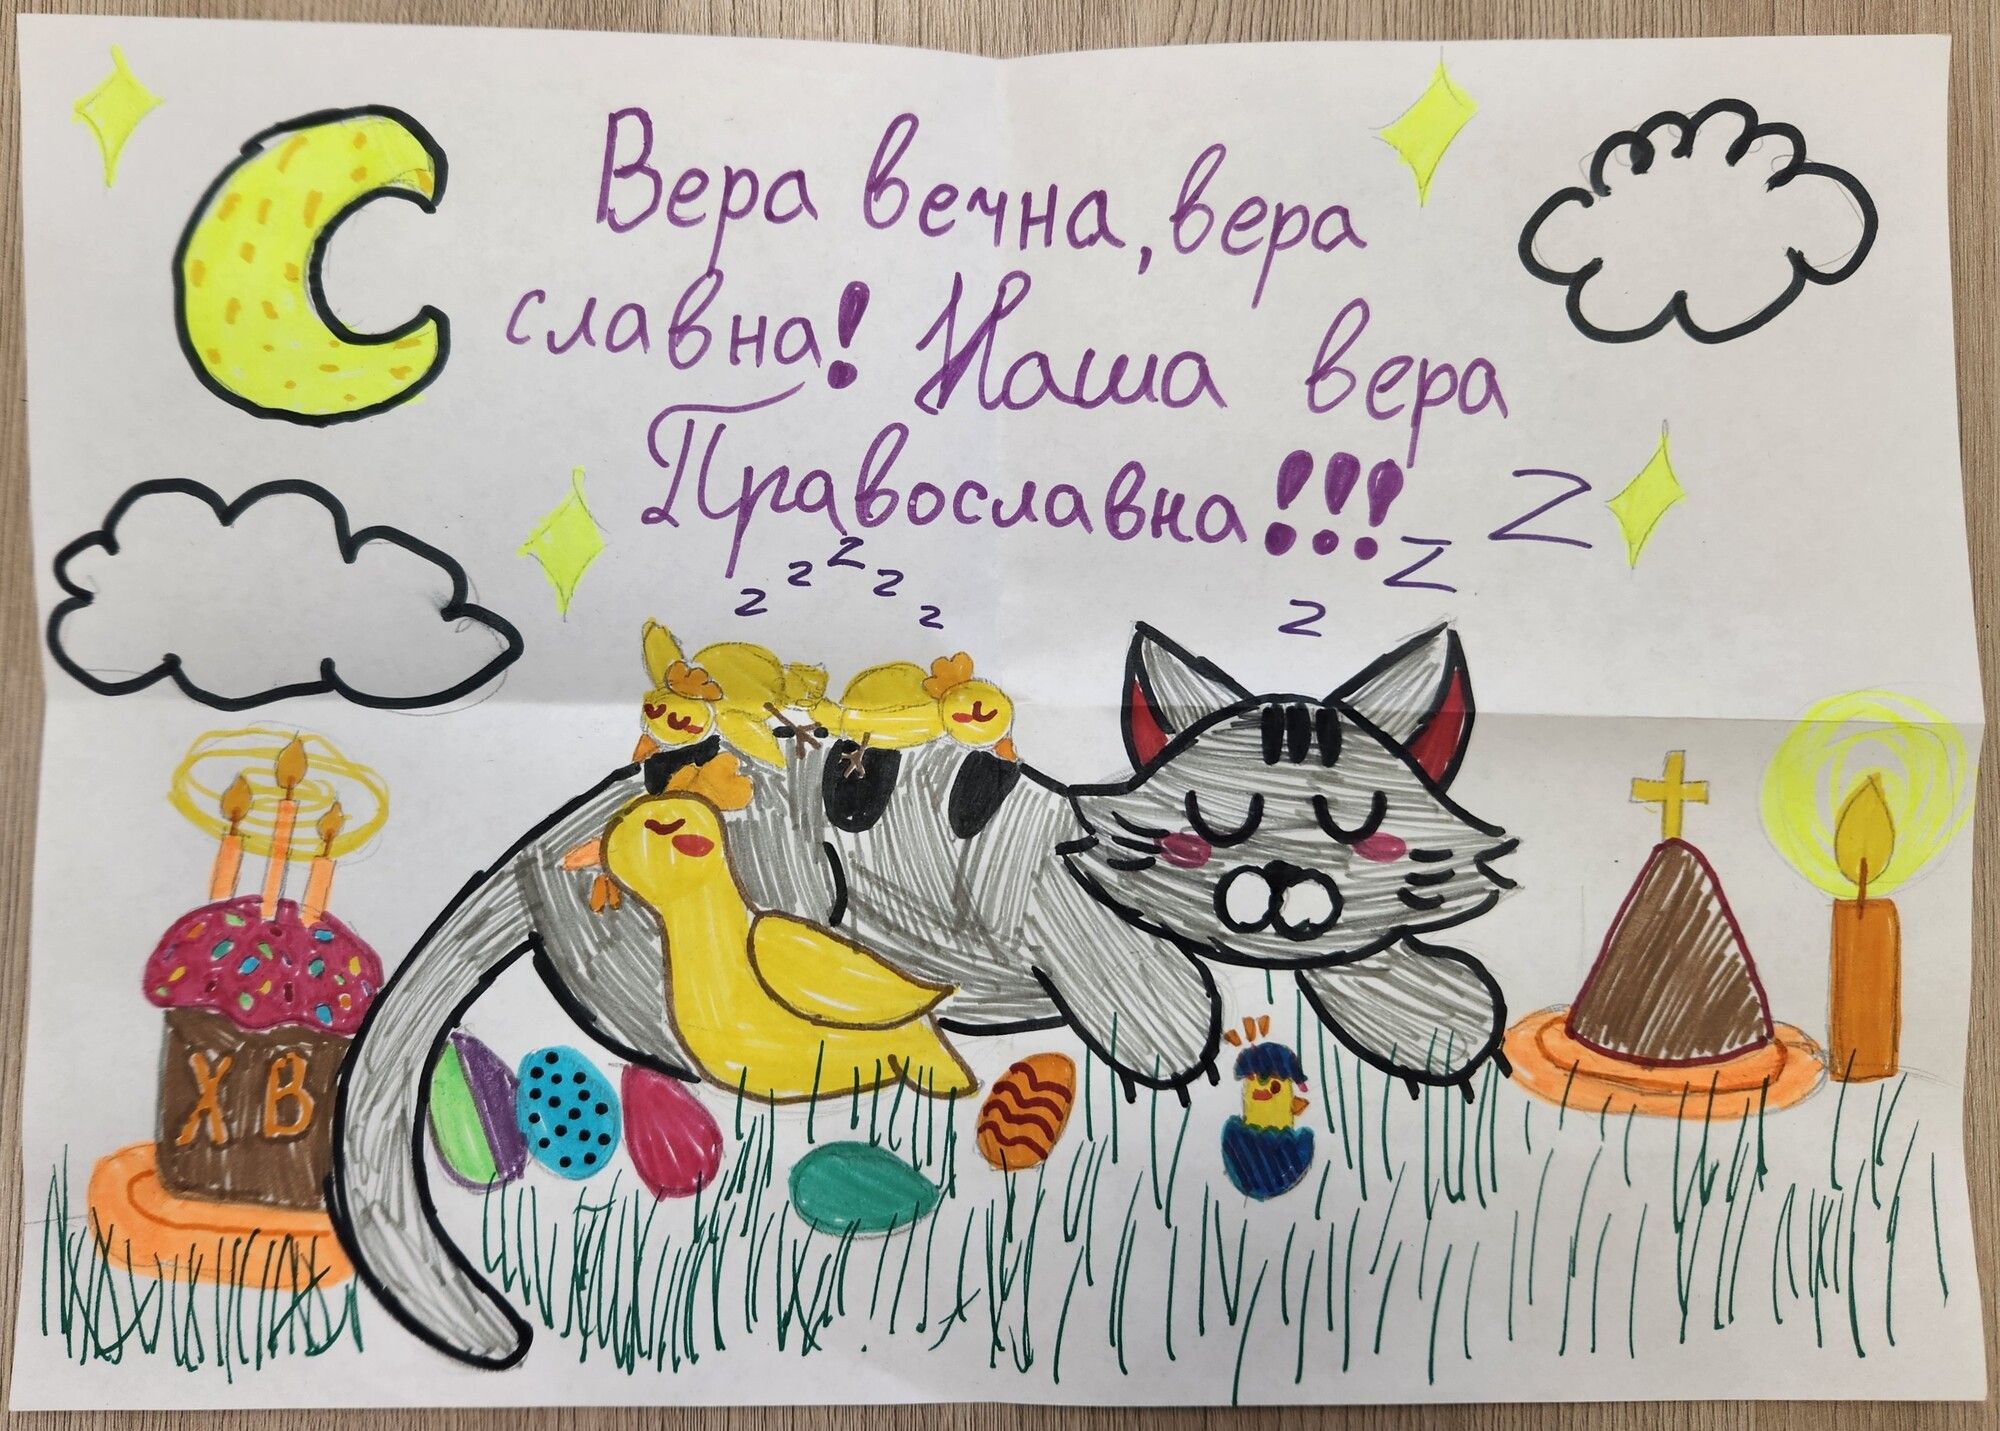 Вера вечна, вера
славна! Наша вера
Православна!!!
z z z z z
z z z
Х В